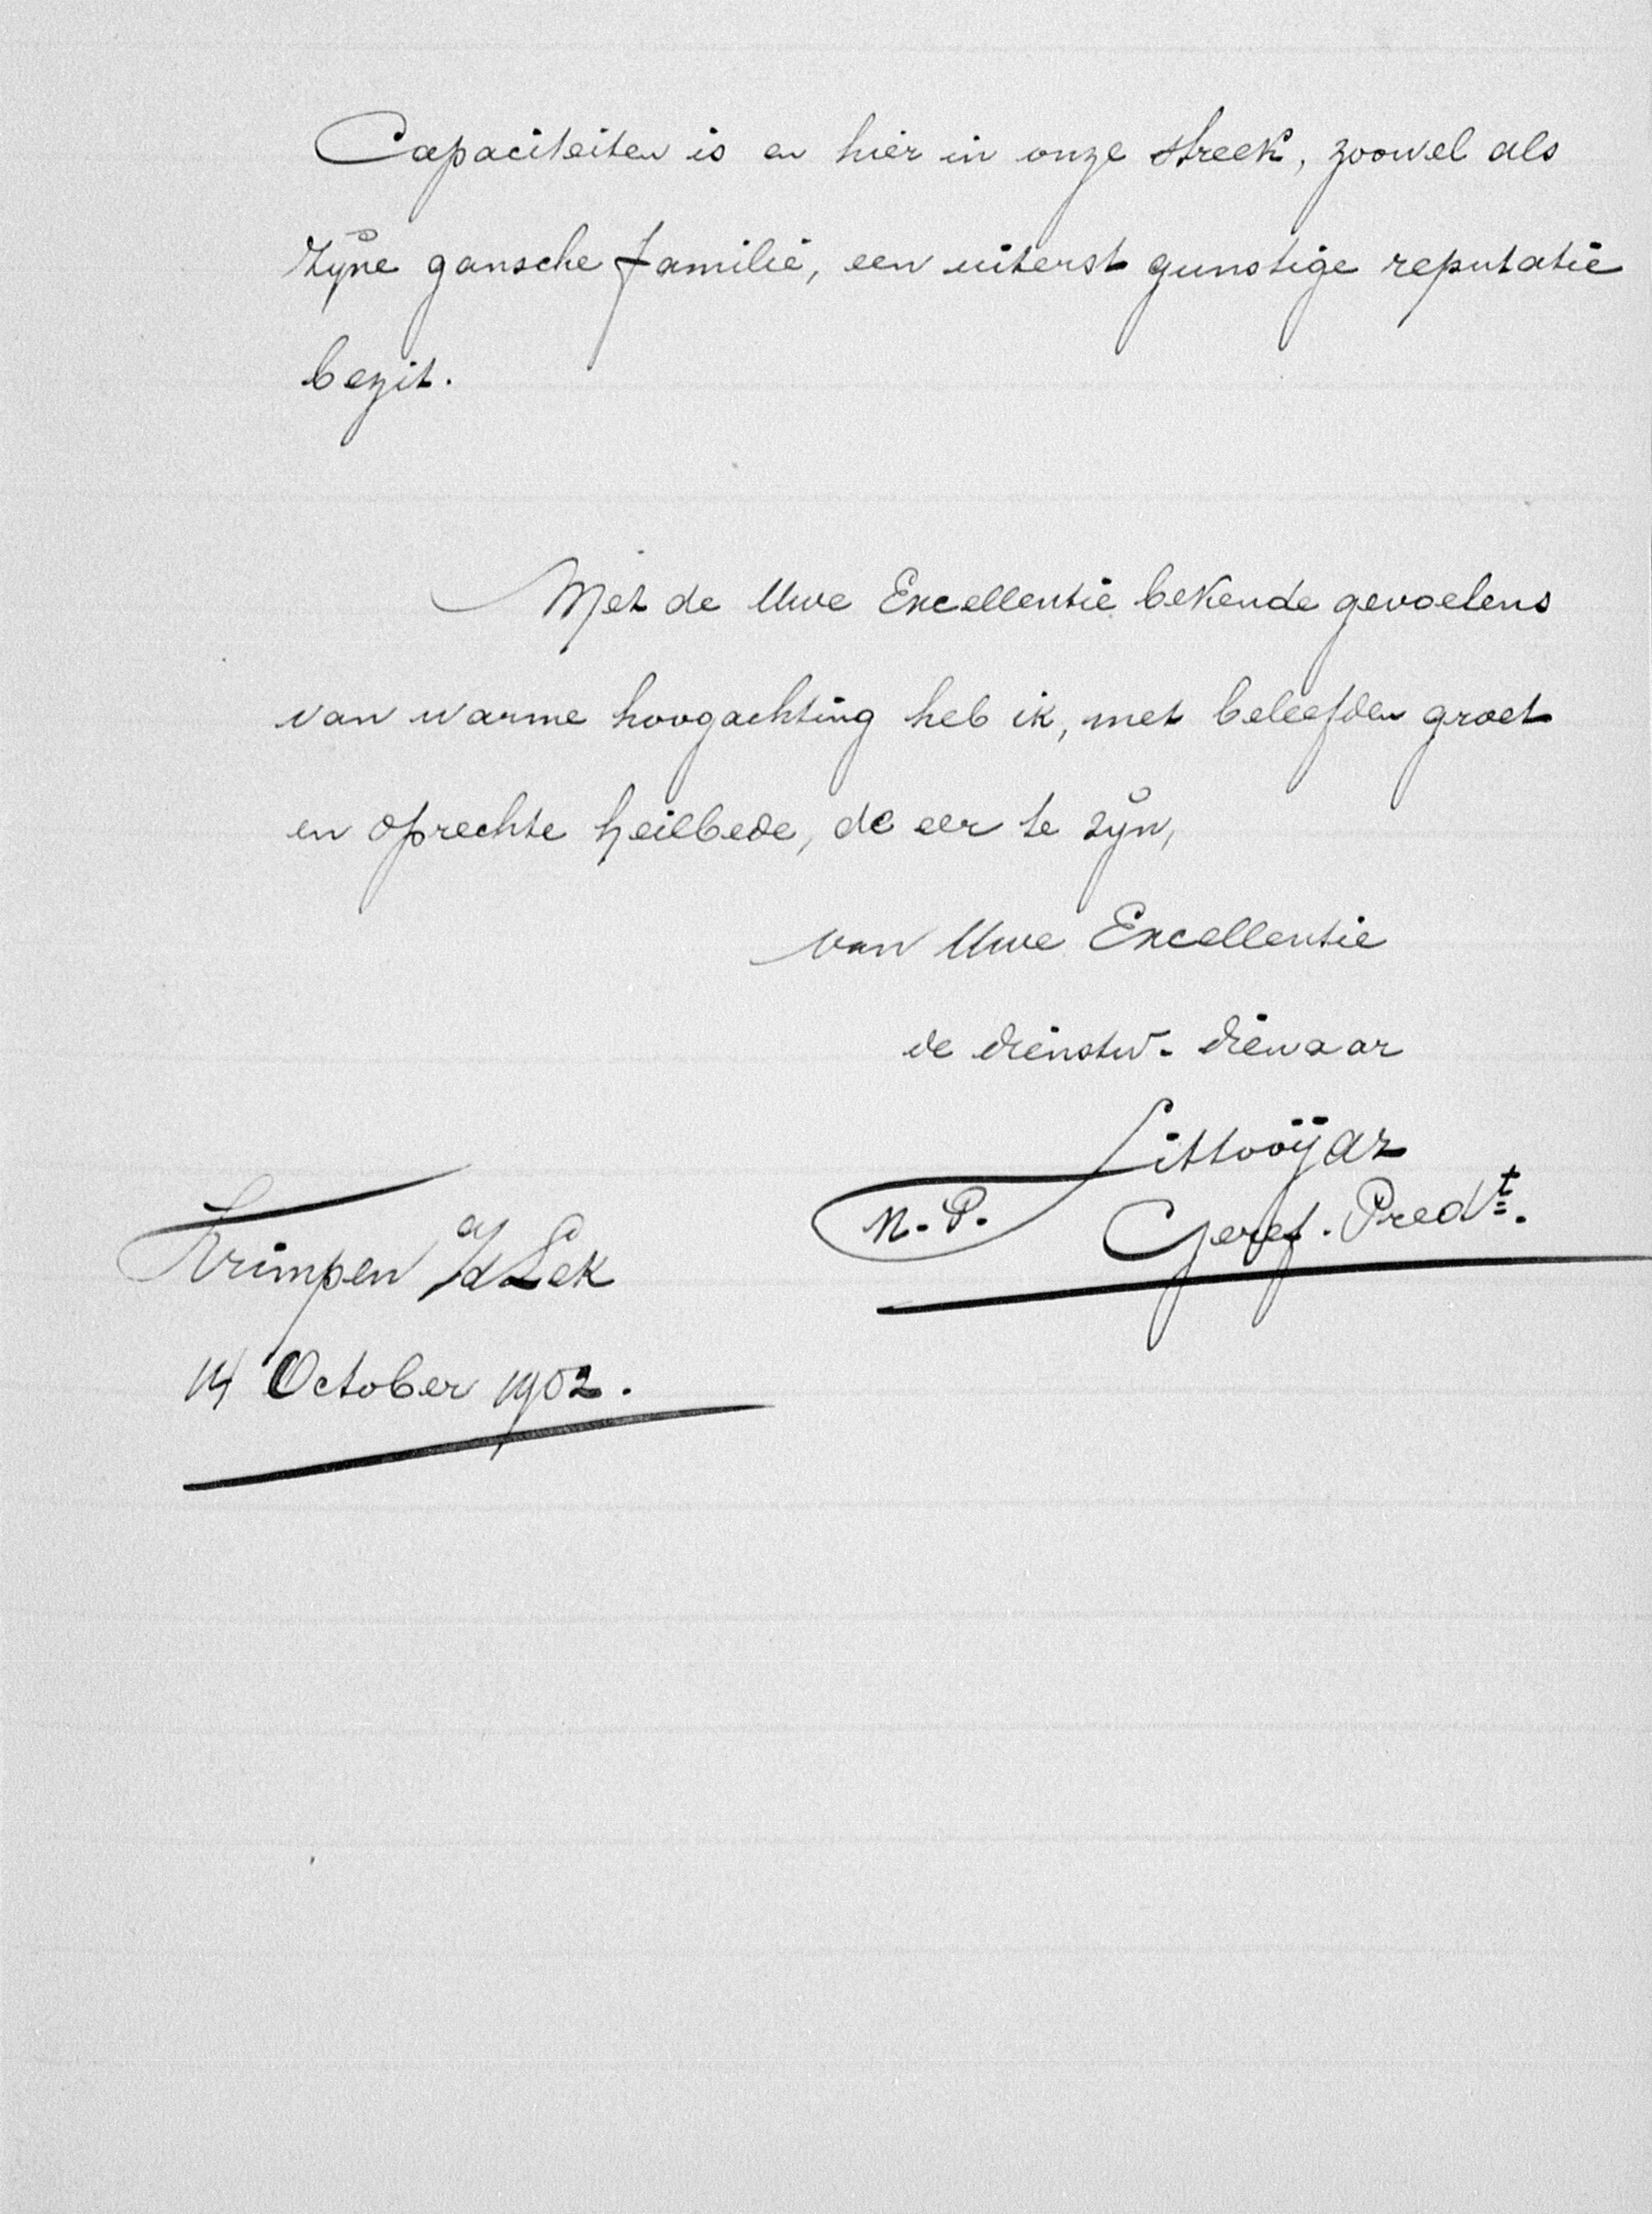 Capaciteiten is en hier in onze streek, zoowel als
zijne gansche familie, een uiterst gunstige reputatie
bezit.
Met de Uwe Excellentie bekende gevoelens
van warme hoogachting heb ik, met beleefden groet
en oprechte heilbede, de eer te zijn,
van Uwe Excellentie
de dienstw. dienaar
Littooÿ Az
N.P. Geref. Predt.
Krimpen a/d Lek
14 October 1902.